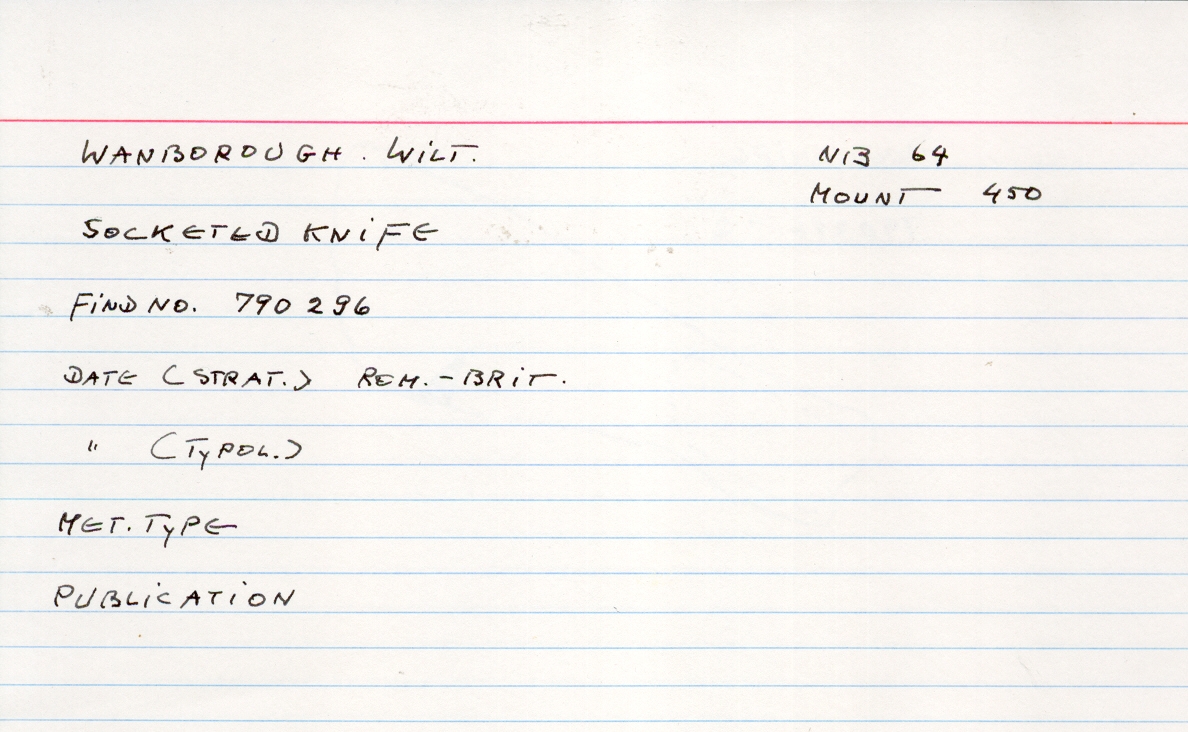 WANBOROUGH. WiLT.
NB 64
MOUNT 450
SOCKETED KNiFE
FiND NO. 790 296
DATE (STRAT.) ROM.-BRiT.
" (TyPOL.)
MET. TyPE
PUBLiCATiON